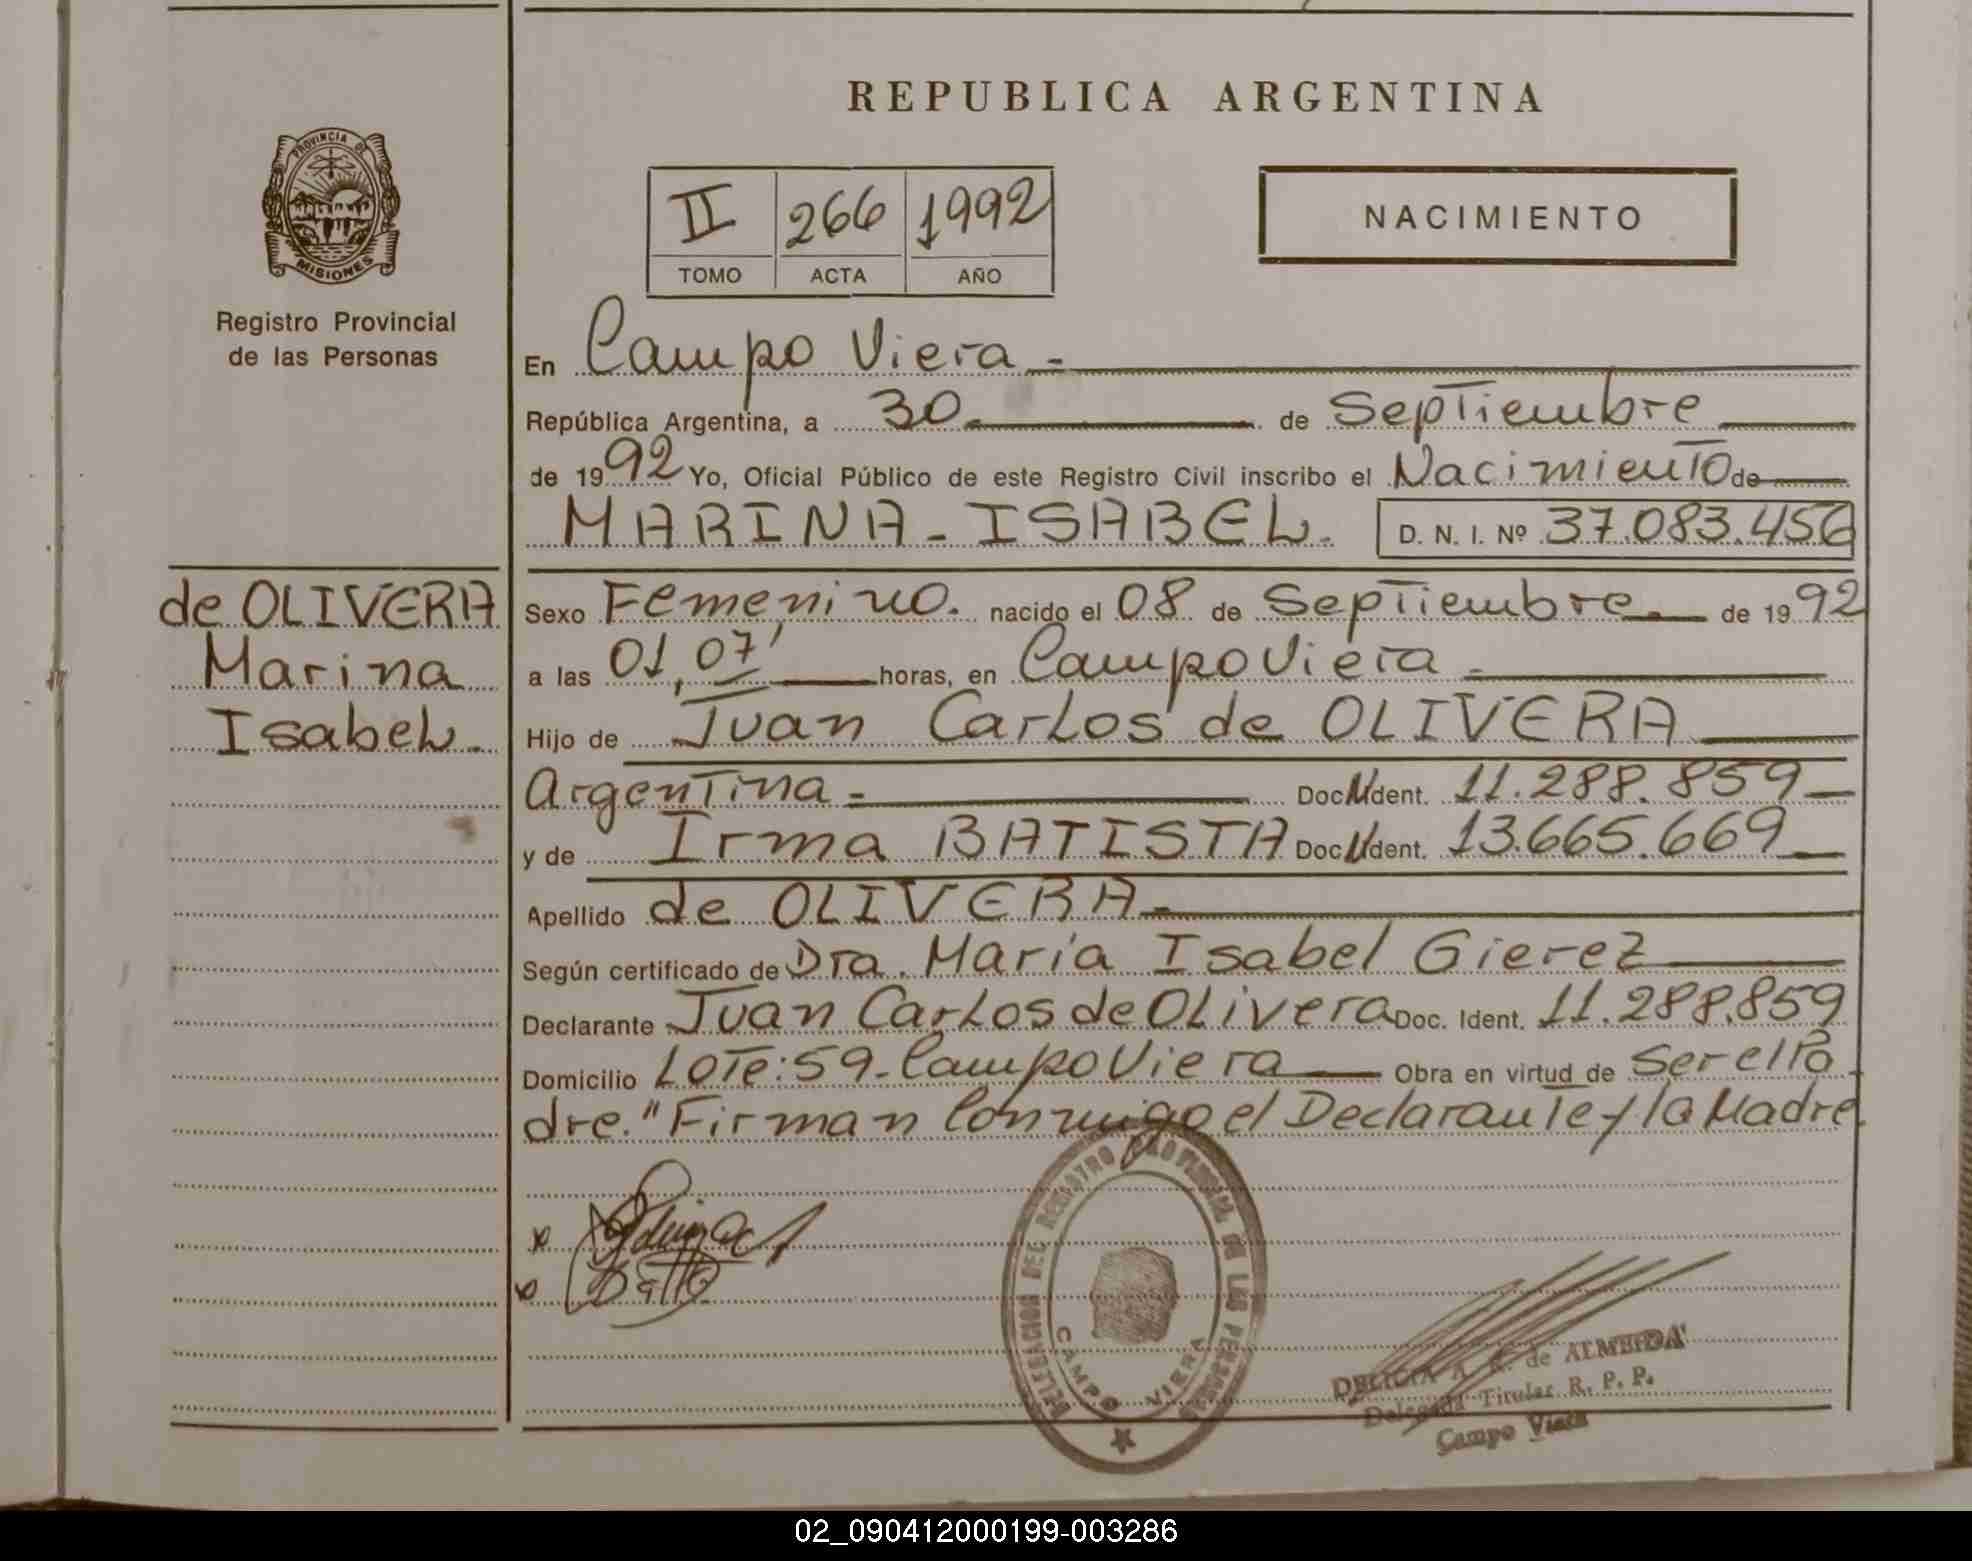 REPUBLICA ARGENTINA
PROVINCIA DE
MISIONES
Registro Provincial
de las Personas
II 266 1992
TOMO ACTA AÑO
NACIMIENTO
En Campo Viera -
República Argentina, a 30 de Septiembre
de 1992 Yo, Oficial Público de este Registro Civil inscribo el Nacimiento de
MARINA - ISABEL. D. N. I. Nº 37.083.456
de OLIVERA
Marina
Isabel.
Sexo Femenino. nacido el 08 de Septiembre. de 1992
a las 01,07' horas, en Campo Viera -
Hijo de Juan Carlos de OLIVERA
Argentina - Doc. Ident. 11.288.859
y de Irma BATISTA Doc. Ident. 13.665.669
Apellido de OLIVERA -
Según certificado de Dra. María Isabel Gierez
Declarante Juan Carlos de OLivera Doc. Ident. 11.288.859
Domicilio Lote: 59 - Campo Viera Obra en virtud de Ser el Pa
dre. " Firman Conmigo el Declarante y la Madre.
DELEGACION DEL REGISTRO PROVINCIAL DE LAS PERSONAS
CAMPO VIERA
DELICIA A. de ALMEIDA
Delegada Titular R. P. P.
Campo Viera
02_090412000199-003286